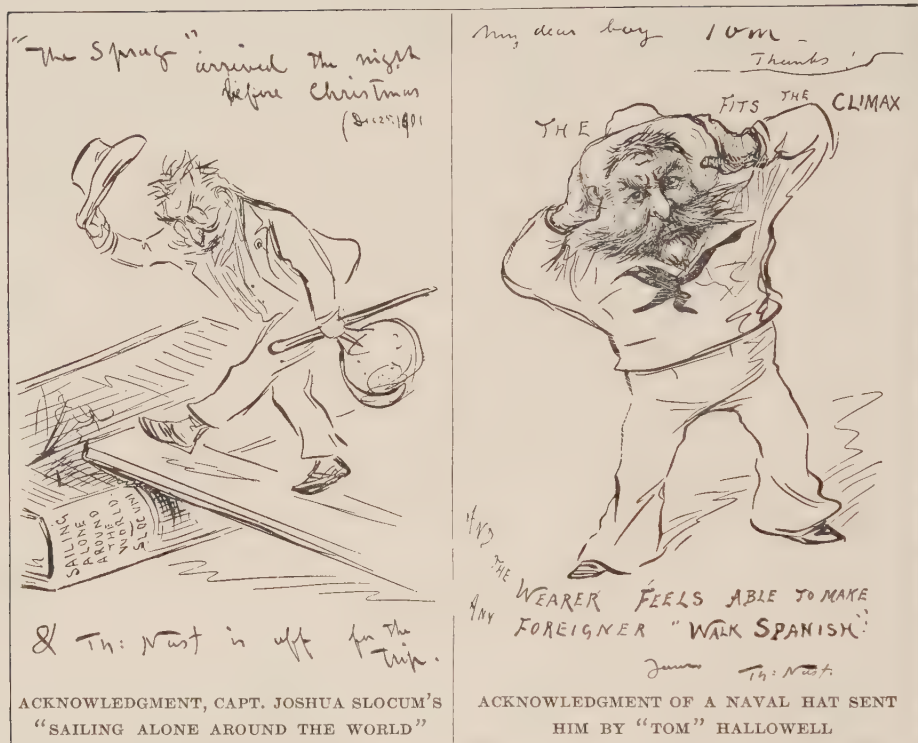 "The Spray" arrived the night
before Christmas
(Dec 25. 1901
SAILING
ALONE
AROUND
THE
WORLD
SLOCUM
& Th: Nast is off for the
Trip.
ACKNOWLEDGMENT, CAPT. JOSHUA SLOCUM'S
"SAILING ALONE AROUND THE WORLD"
My dear boy Tom –
Thanks!
THE FITS THE CLIMAX
AND
THE
WEARER FEELS ABLE TO MAKE
ANY FOREIGNER "WALK SPANISH"!
Yours Th: Nast.
ACKNOWLEDGMENT OF A NAVAL HAT SENT
HIM BY "TOM" HALLOWELL